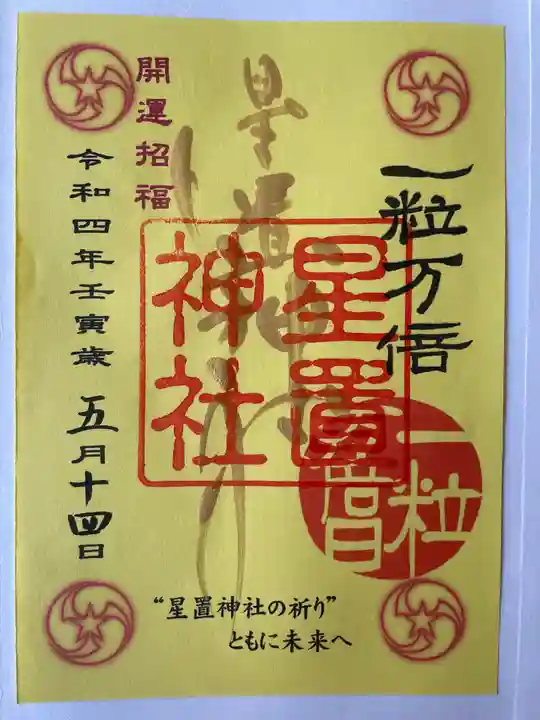 一粒万倍
星置神社
星置
神社
一粒
万倍
開運招福
令和四年壬寅歳 五月十四日
“星置神社の祈り”
ともに未来へ